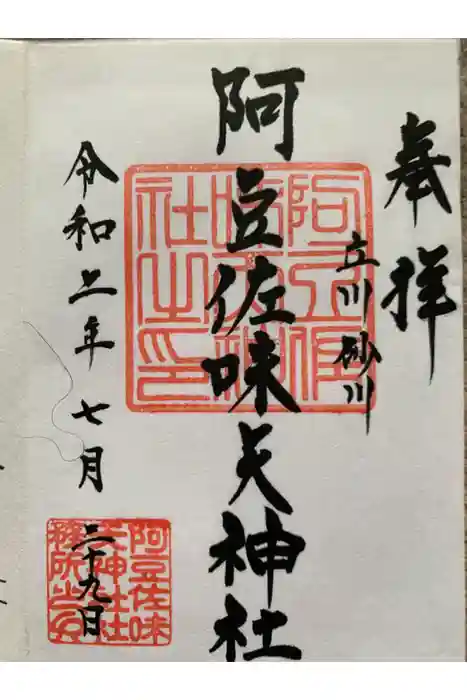 奉拝
立川砂川
阿豆佐味天神社
令和二年七月
二十九日
阿豆佐
味天神
社之印
阿豆佐味
天神社社
務所之印